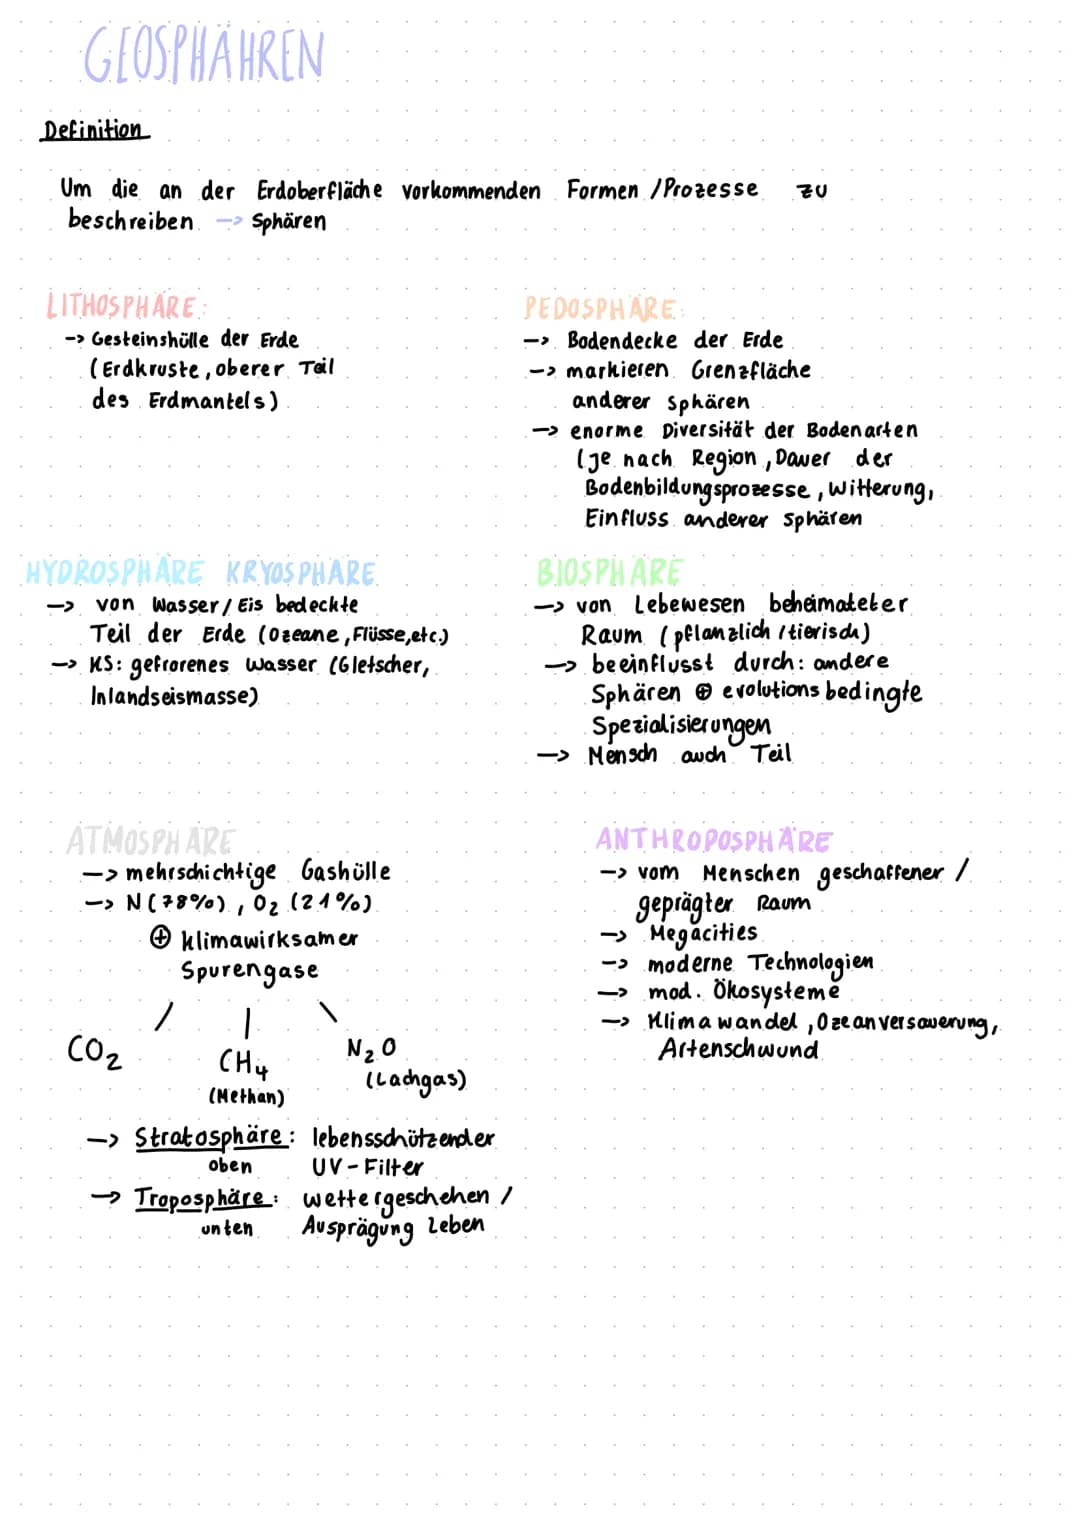 GEOSPHÄHREN
Definition
Um die an der Erdoberfläche vorkommenden Formen / Prozesse zu
beschreiben -> Sphären
LITHOSPHÄRE:
-> Gesteinshülle der Erde
(Erdkruste, oberer Teil
des Erdmantels)
PEDOSPHÄRE:
-> Bodendecke der Erde
-> markieren Grenzfläche
anderer Sphären
-> enorme Diversität der Bodenarten
(je nach Region, Dauer der
Bodenbildungsprozesse, Witterung,
Einfluss anderer Sphären
HYDROSPHÄRE KRYOSPHÄRE
-> von Wasser / Eis bedeckte
Teil der Erde (Ozeane, Flüsse, etc.)
-> KS: gefrorenes Wasser (Gletscher,
Inlandseismasse)
BIOSPHÄRE
-> von Lebewesen beheimateter
Raum (pflanzlich / tierisch)
-> beeinflusst durch: andere
Sphären ⊕ evolutionsbedingte
Spezialisierungen
-> Mensch auch Teil
ATMOSPHÄRE
-> mehrschichtige Gashülle
-> N (78%), O₂ (21%)
⊕ klimawirksamer
Spurengase
CO₂
CH₄
(Methan)
N₂O
(Lachgas)
-> Stratosphäre: lebensschützender
oben UV-Filter
-> Troposphäre: wettergeschehen /
unten Ausprägung Leben
ANTHROPOSPHÄRE
-> vom Menschen geschaffener /
geprägter Raum
-> Megacities
-> moderne Technologien
-> mod. Ökosysteme
-> Klimawandel, Ozeanversauerung,
Artenschwund